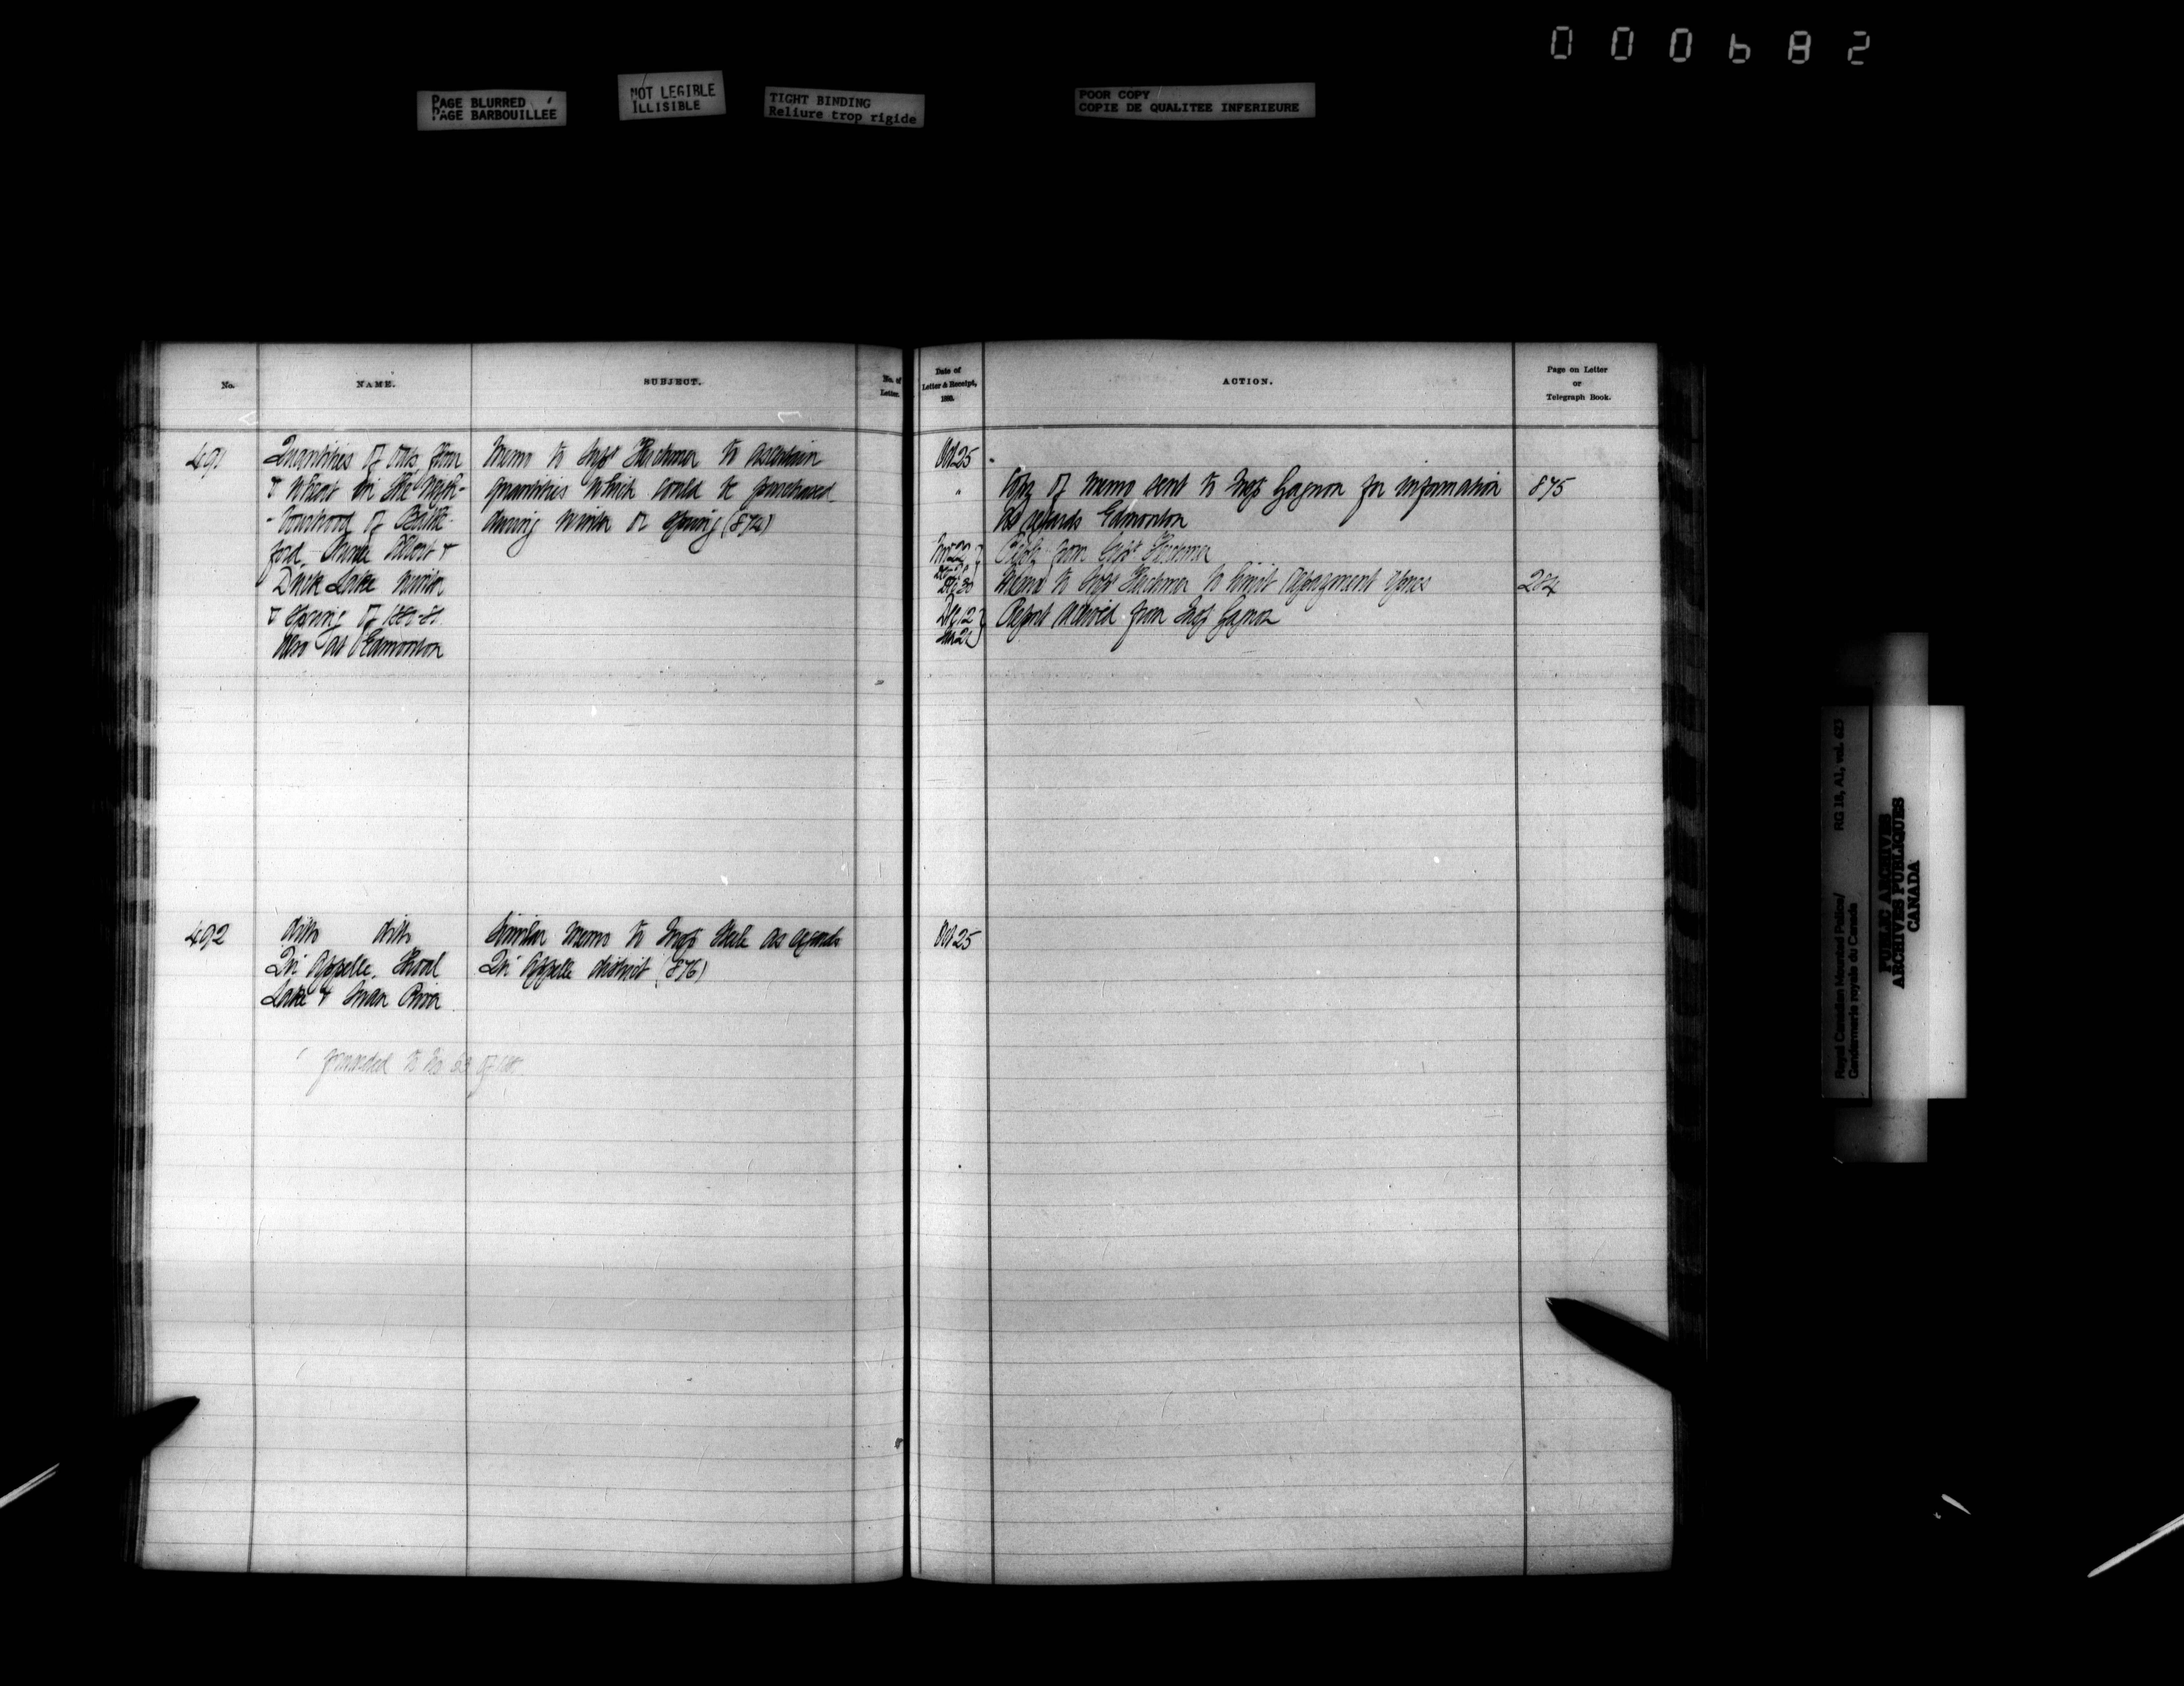 000682
PAGE BLURRED
PAGE BARBOUILLEE
NOT LEGIBLE
ILLISIBLE
TIGHT BINDING
Reliure trop rigide
POOR COPY
COPIE DE QUALITEE INFERIEURE
No.
NAME.
SUBJECT.
No. of
Letter.
Date of
Letter & Receipt,
1880.
ACTION.
Page on Letter
or
Telegraph Book.
491
Quantities of oats, flour
& wheat in the neigh-
-bourhood of Battle-
ford, Prince Albert &
Duck Lake winter
& Spring of 1880-81
Also at Edmonton
Memo to Supt Herchmer to ascertain
quantities which could be purchased
during winter or spring (874)
Oct 25
"
Copy of memo sent to Insp Gagnon for information
as regards Edmonton
875
Nov 22
Reply from Supt Herchmer
Dec 30
Memo to Supt Herchmer to limit
284
Dec 12
Jan 21
Report received from Insp Gagnon
492
ditto ditto
Qu'Appelle, Shoal
Lake & Swan River
Similar memo to Insp Steele as regards
Qu'Appelle district (876)
Oct 25
forwarded to No 53 of
Royal Canadian Mounted Police/ RG 18, A1, vol. 623
Gendarmerie royale du Canada
PUBLIC ARCHIVES
ARCHIVES PUBLIQUES
CANADA